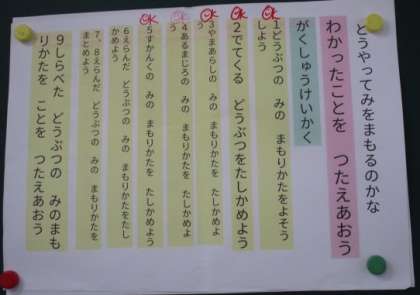 どうやってみをまもるのかな
わかったことを つたえあおう
がくしゅうけいかく
OK
1どうぶつの みの まもりかたをよそう
しよう
OK
2でてくる どうぶつをたしかめよう
OK
3やまあらしの みの まもりかたを たしかめよ
う
OK
4あるまじろの みの まもりかたを たしかめよ
う
OK
5すかんくの みの まもりかたを たしかめよう
6えらんだ どうぶつの みの まもりかたをたし
かめよう
7、8えらんだ どうぶつの みの まもりかたを
まとめよう
9しらべた どうぶつの みのまも
りかたを ことを つたえあおう